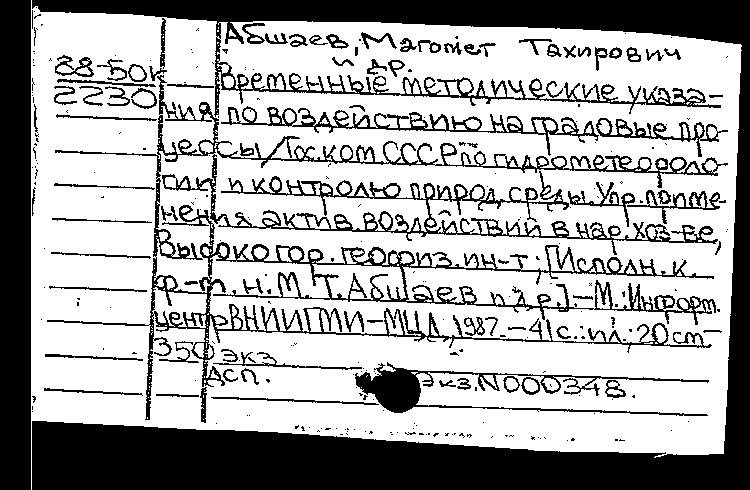 Абшаев, Магомет Тахирович
и др.
88-50к
2230
Временные методические указа-
ния по воздействию на градовые про-
цессы/Гос.ком.СССР по гидрометеороло-
гии и контролю природ.среды.Упр.приме-
нения актив.воздействий в нар.хоз-ве,
Высокогор.геофиз.ин-т;[Исполн.к.
ф-м.н.М.Т.Абшаев и др.].-М.:Информ.
центр ВНИИГМИ-МЦД,1987.-41с.:ил.;20см-
350 экз
ДСП. Экз.N000348.